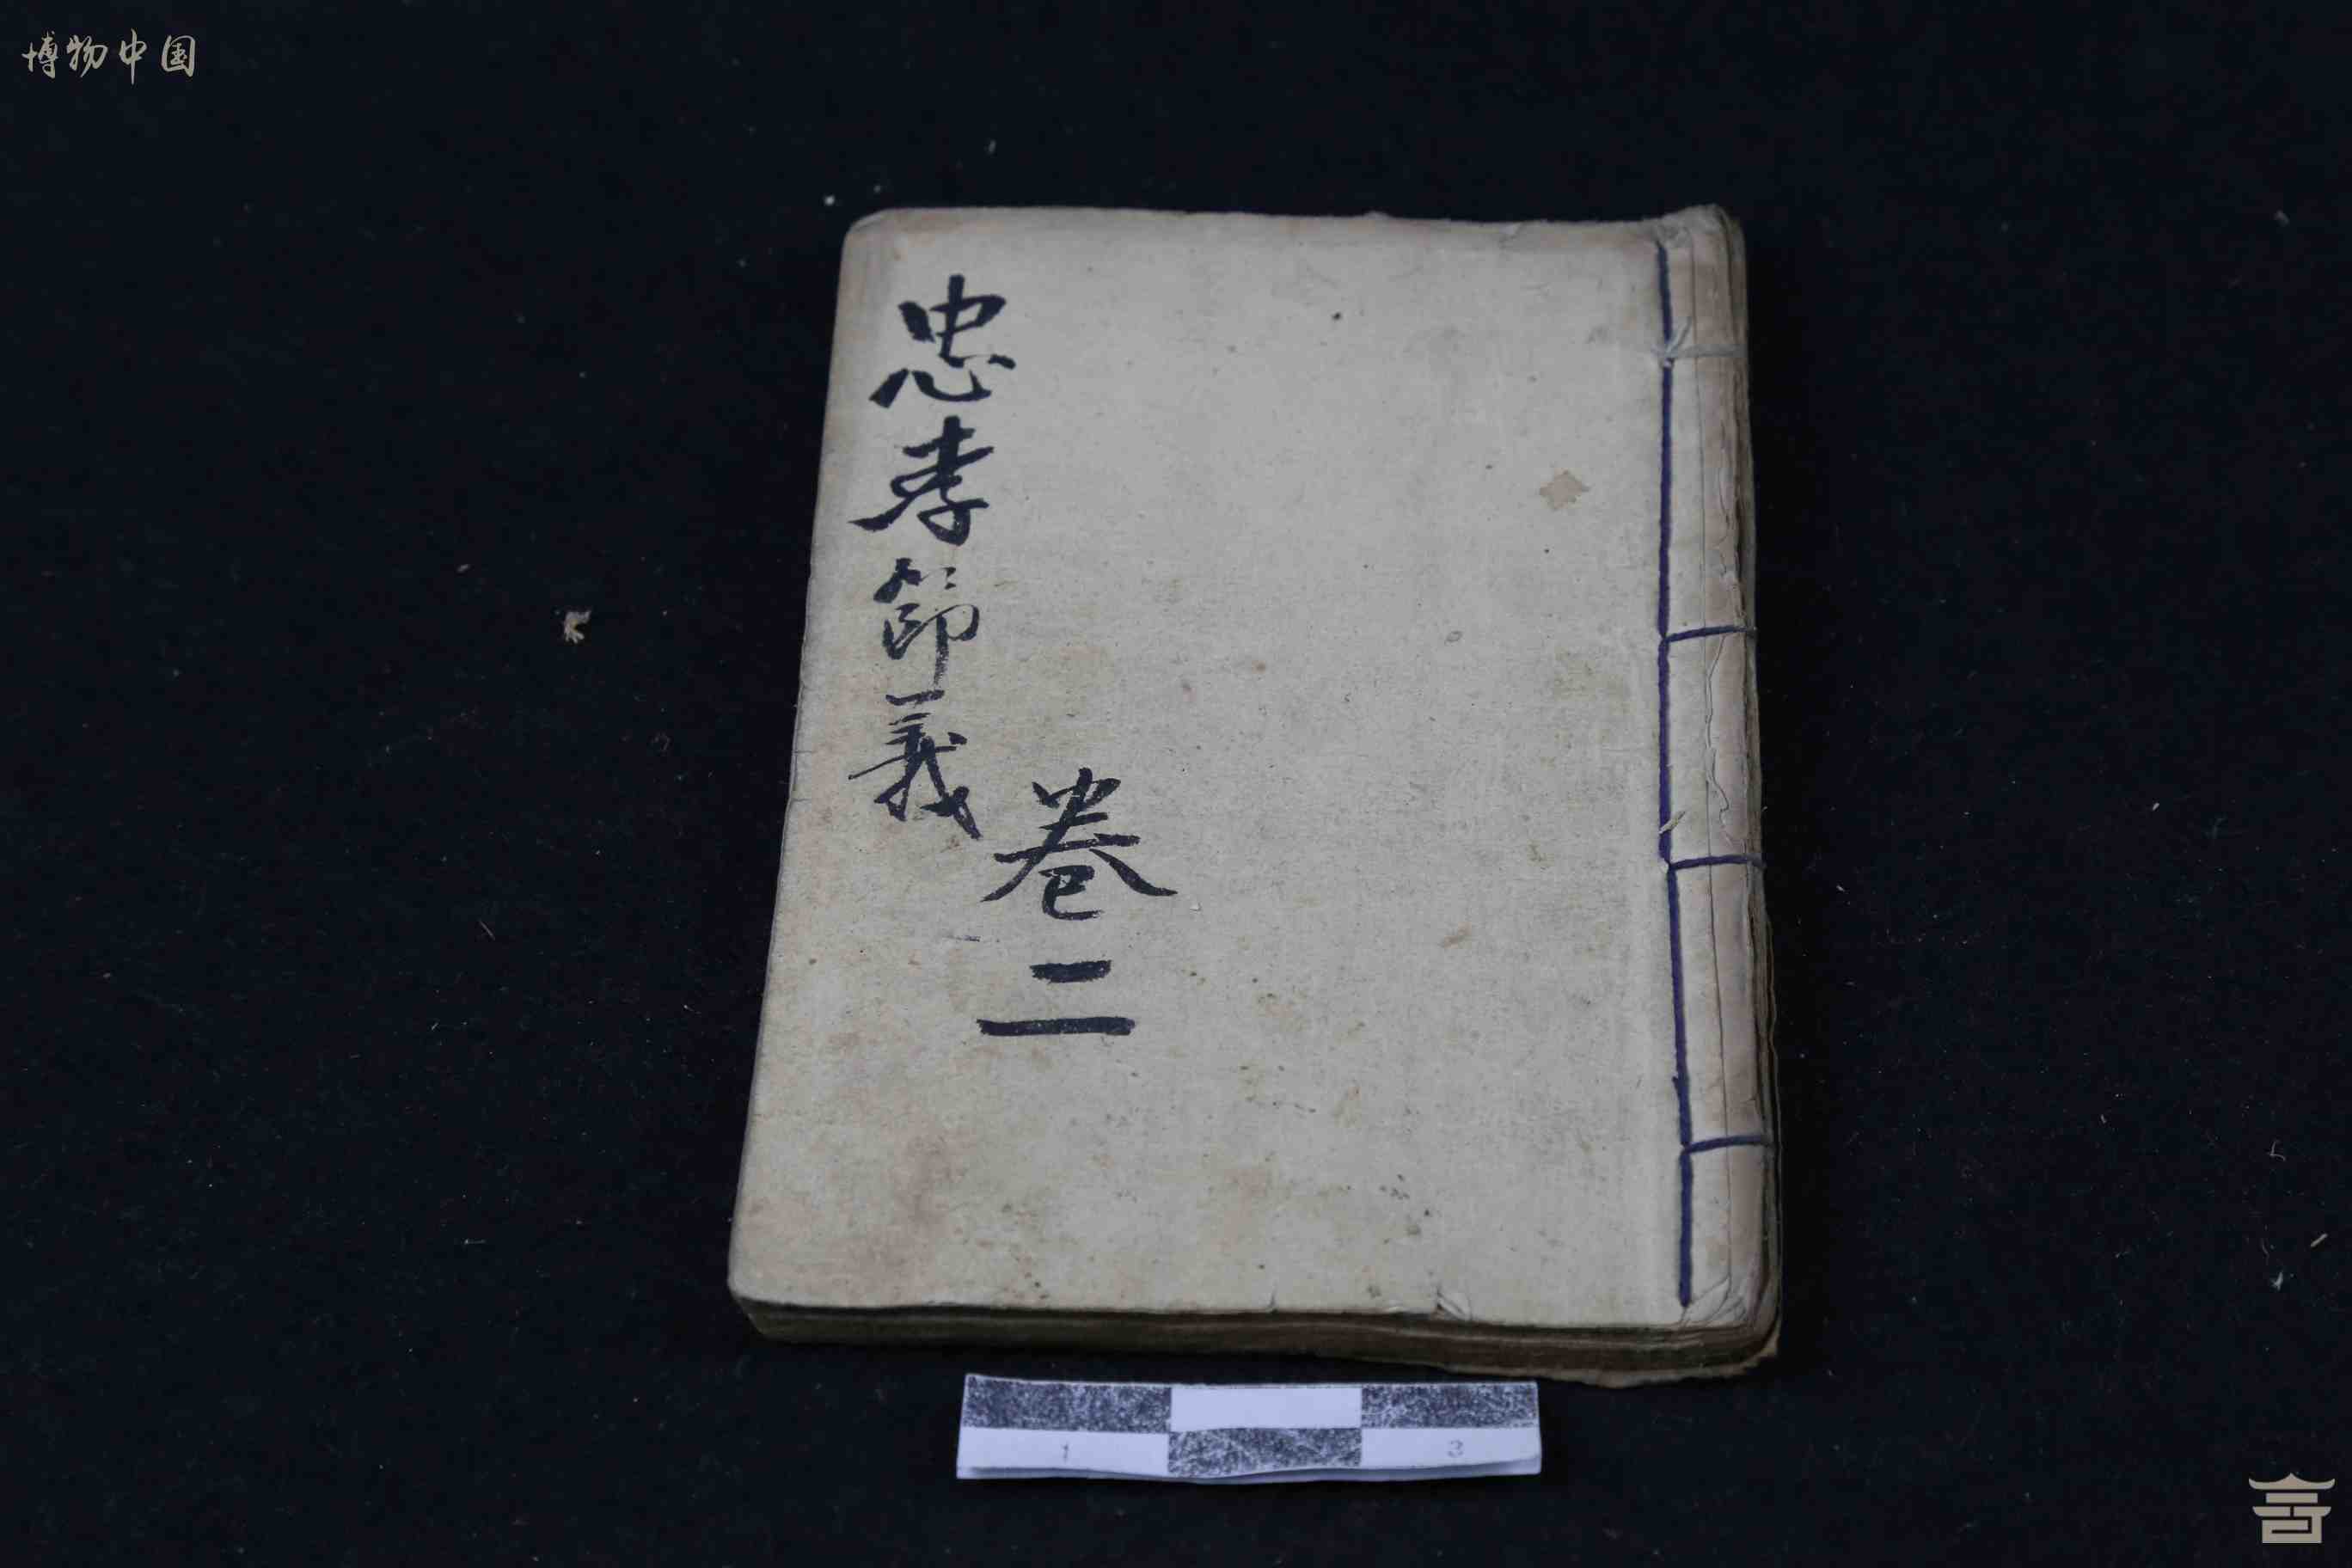 博物中国
忠孝節義
卷二
1 3